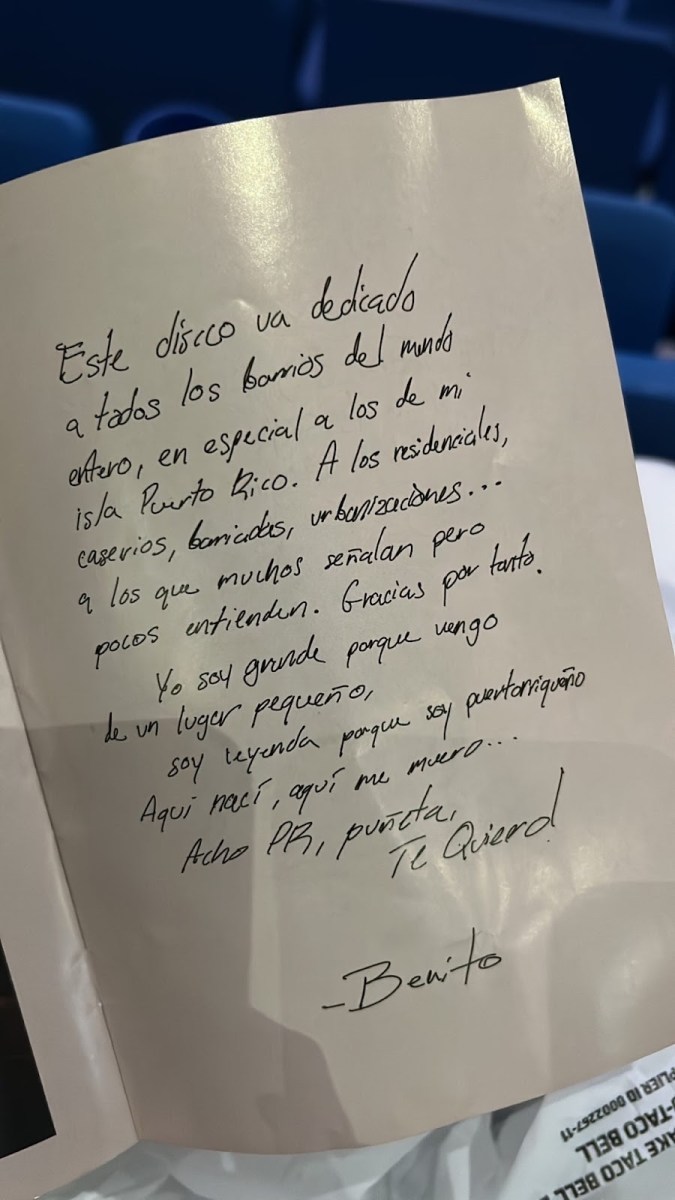 Este discco va dedicado
a todos los barrios del mundo
entero, en especial a los de mi
isla Puerto Rico. A los residenciales,
caserios, barriadas, urbanizaciones...
a los que muchos señalan pero
pocos entienden. Gracias por tanto.
Yo soy grande porque vengo
de un lugar pequeño,
soy leyenda porque soy puertorriqueño
Aquí nací, aquí me muero...
Acho PR, puñeta,
Te Quiero!
-Benito
PLIER ID 0002267-11
-TACO BELL
AKE TACO BELL